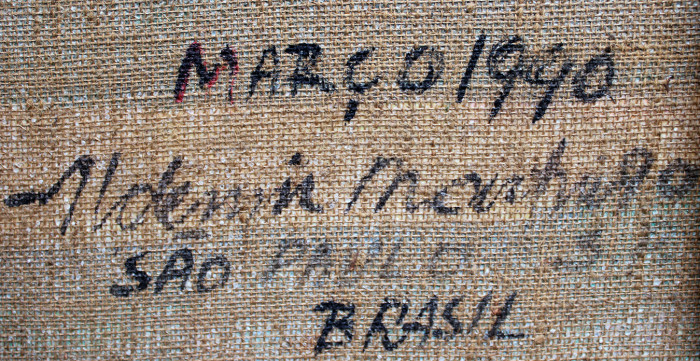 MARÇO 1990
Aldemir Martins
SÃO PAULO
BRASIL